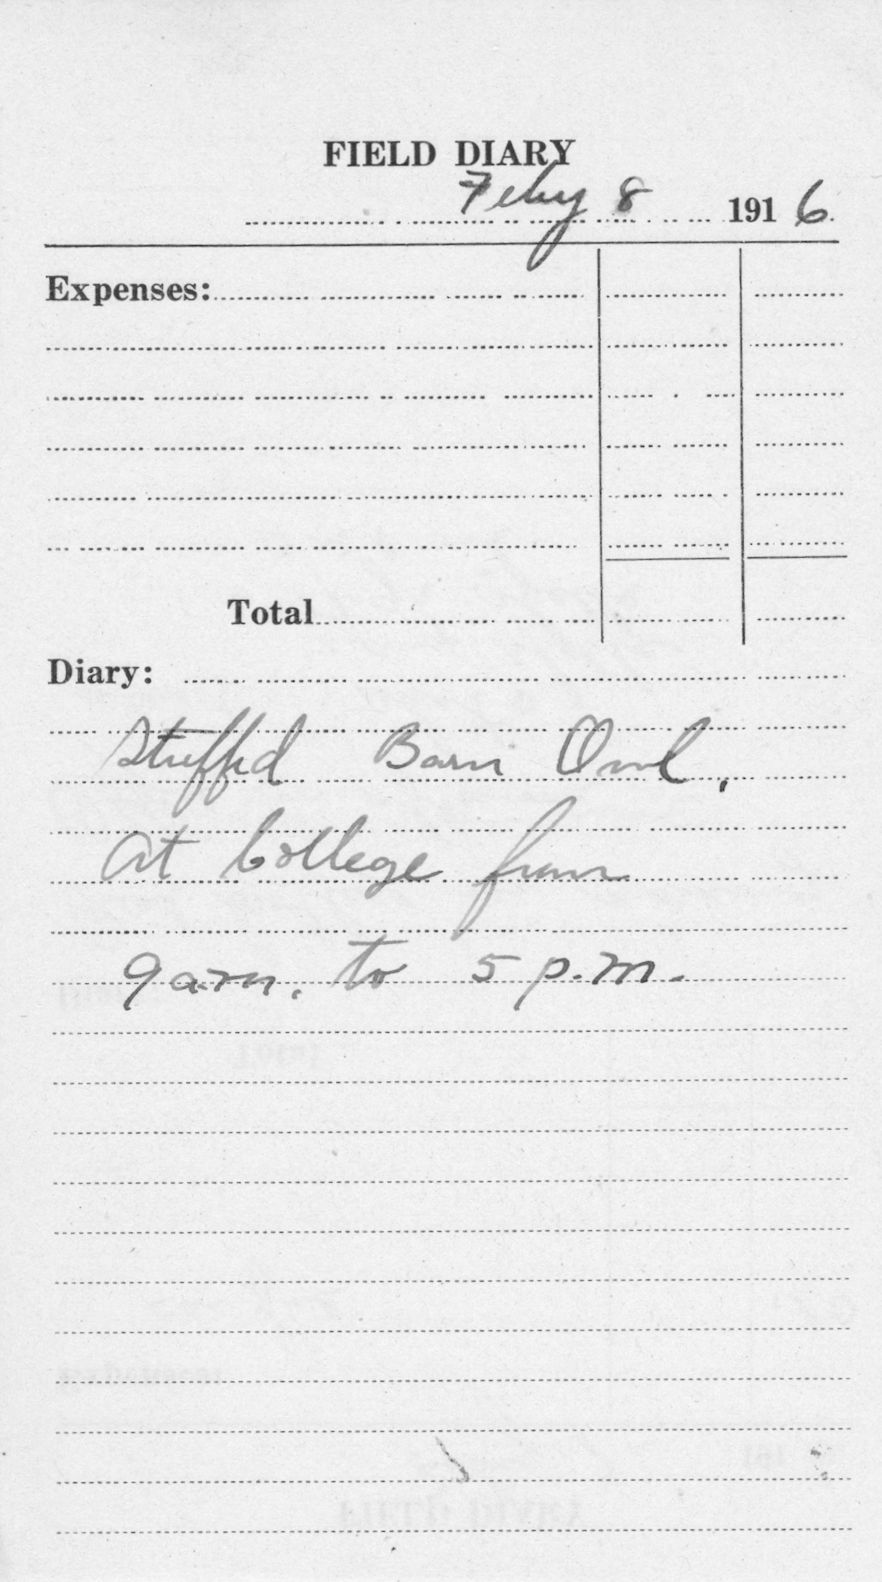 FIELD DIARY
Feby 8 1916
Expenses:
Total
Diary:
Stuffed Barn Owl,
At College from
9 a.m. to 5 p.m.